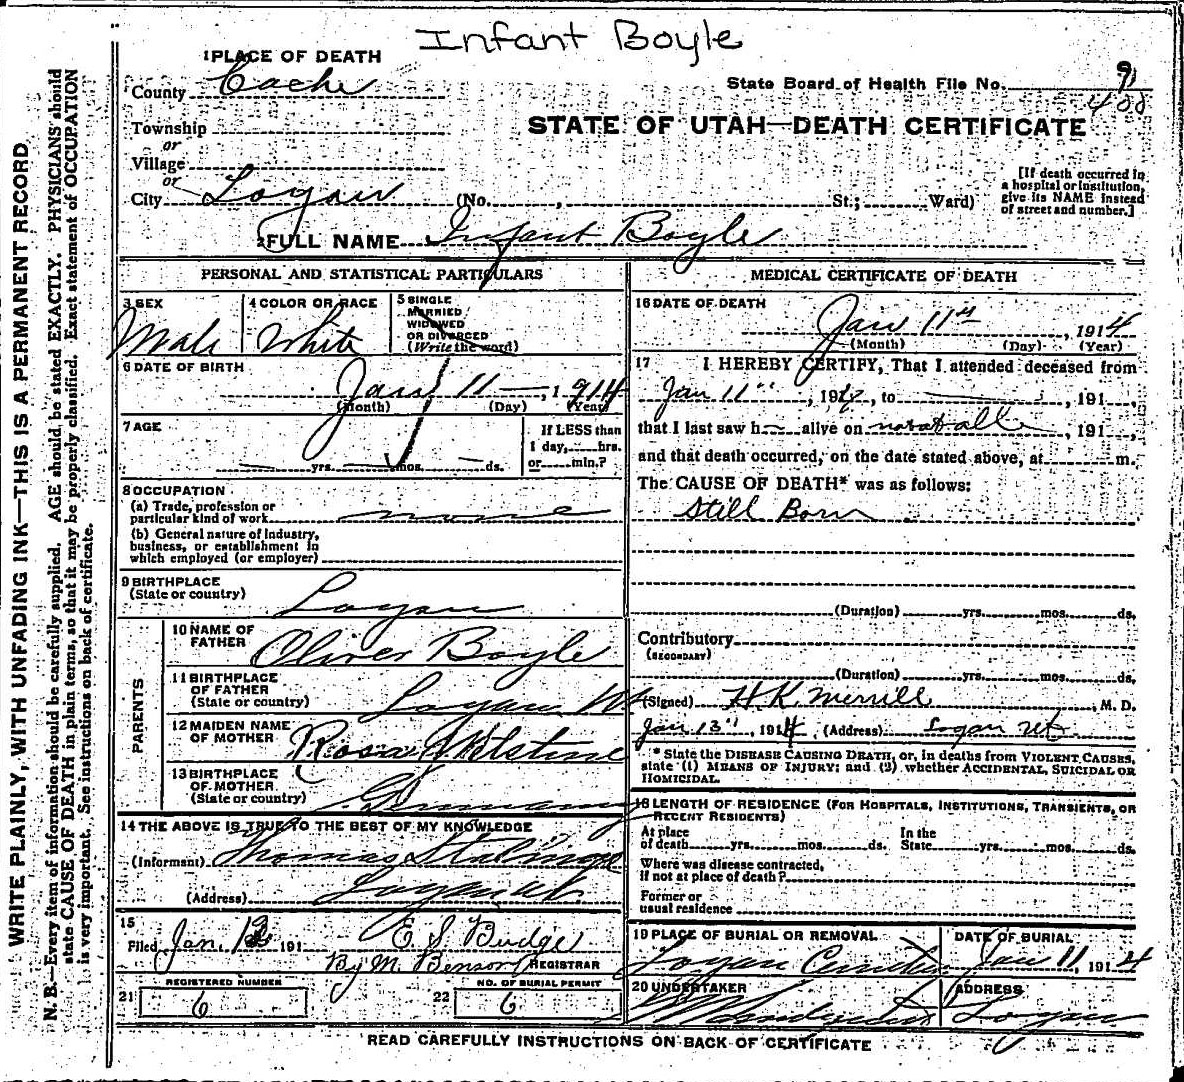 Infant Boyle
1 PLACE OF DEATH
County Cache
State Board of Health File No. 9
408
Township
or
Village
or
City Logan (No. , St.; Ward)
STATE OF UTAH—DEATH CERTIFICATE
[If death occurred in
a hospital or institution,
give its NAME instead
of street and number.]
2 FULL NAME Infant Boyle
PERSONAL AND STATISTICAL PARTICULARS
3 SEX
Male
4 COLOR OR RACE
White
5 SINGLE
MARRIED
WIDOWED
OR DIVORCED
(Write the word)
6 DATE OF BIRTH
Jan 11 — , 1914
(Month) (Day) (Year)
7 AGE
— yrs. — mos. — ds.
If LESS than
1 day, hrs.
or min.?
8 OCCUPATION
(a) Trade, profession or
particular kind of work none
(b) General nature of industry,
business, or establishment in
which employed (or employer)
9 BIRTHPLACE
(State or country) Logan
PARENTS
10 NAME OF
FATHER Oliver Boyle
11 BIRTHPLACE
OF FATHER
(State or country) Logan Ut
12 MAIDEN NAME
OF MOTHER Rosa
13 BIRTHPLACE
OF MOTHER
(State or country) Germany
14 THE ABOVE IS TRUE TO THE BEST OF MY KNOWLEDGE
(Informant) Thomas
(Address) Logan Ut.
15
Filed Jan. 191 E. S. Budge
By M. Benson REGISTRAR
REGISTERED NUMBER
21 6
NO. OF BURIAL PERMIT
22 6
MEDICAL CERTIFICATE OF DEATH
16 DATE OF DEATH
Jan 11th , 1914
(Month) (Day) (Year)
17 I HEREBY CERTIFY, That I attended deceased from
Jan 11" , 191 , to — , 191 ,
that I last saw h alive on not at all , 191 ,
and that death occurred, on the date stated above, at m.
The CAUSE OF DEATH* was as follows:
Still Born
(Duration) yrs. mos. ds.
Contributory
(SECONDARY)
(Duration) yrs. mos. ds.
(Signed) H. K. Merrill , M. D.
Jan 13" , 1914 (Address) Logan Ut
* State the DISEASE CAUSING DEATH, or, in deaths from VIOLENT CAUSES,
state (1) MEANS OF INJURY; and (2) whether ACCIDENTAL, SUICIDAL OR
HOMICIDAL.
18 LENGTH OF RESIDENCE (FOR HOSPITALS, INSTITUTIONS, TRANSIENTS, OR
RECENT RESIDENTS)
At place
of death yrs. mos. ds.
In the
State yrs. mos. ds.
Where was disease contracted,
if not at place of death?
Former or
usual residence
19 PLACE OF BURIAL OR REMOVAL
Logan
DATE OF BURIAL
Jan 11, 1914
20 UNDERTAKER
ADDRESS
Logan
READ CAREFULLY INSTRUCTIONS ON BACK OF CERTIFICATE
WRITE PLAINLY, WITH UNFADING INK—THIS IS A PERMANENT RECORD.
N. B.—Every item of information should be carefully supplied. AGE should be stated EXACTLY. PHYSICIANS should
state CAUSE OF DEATH in plain terms, so that it may be properly classified. Exact statement of OCCUPATION
is very important. See instructions on back of certificate.